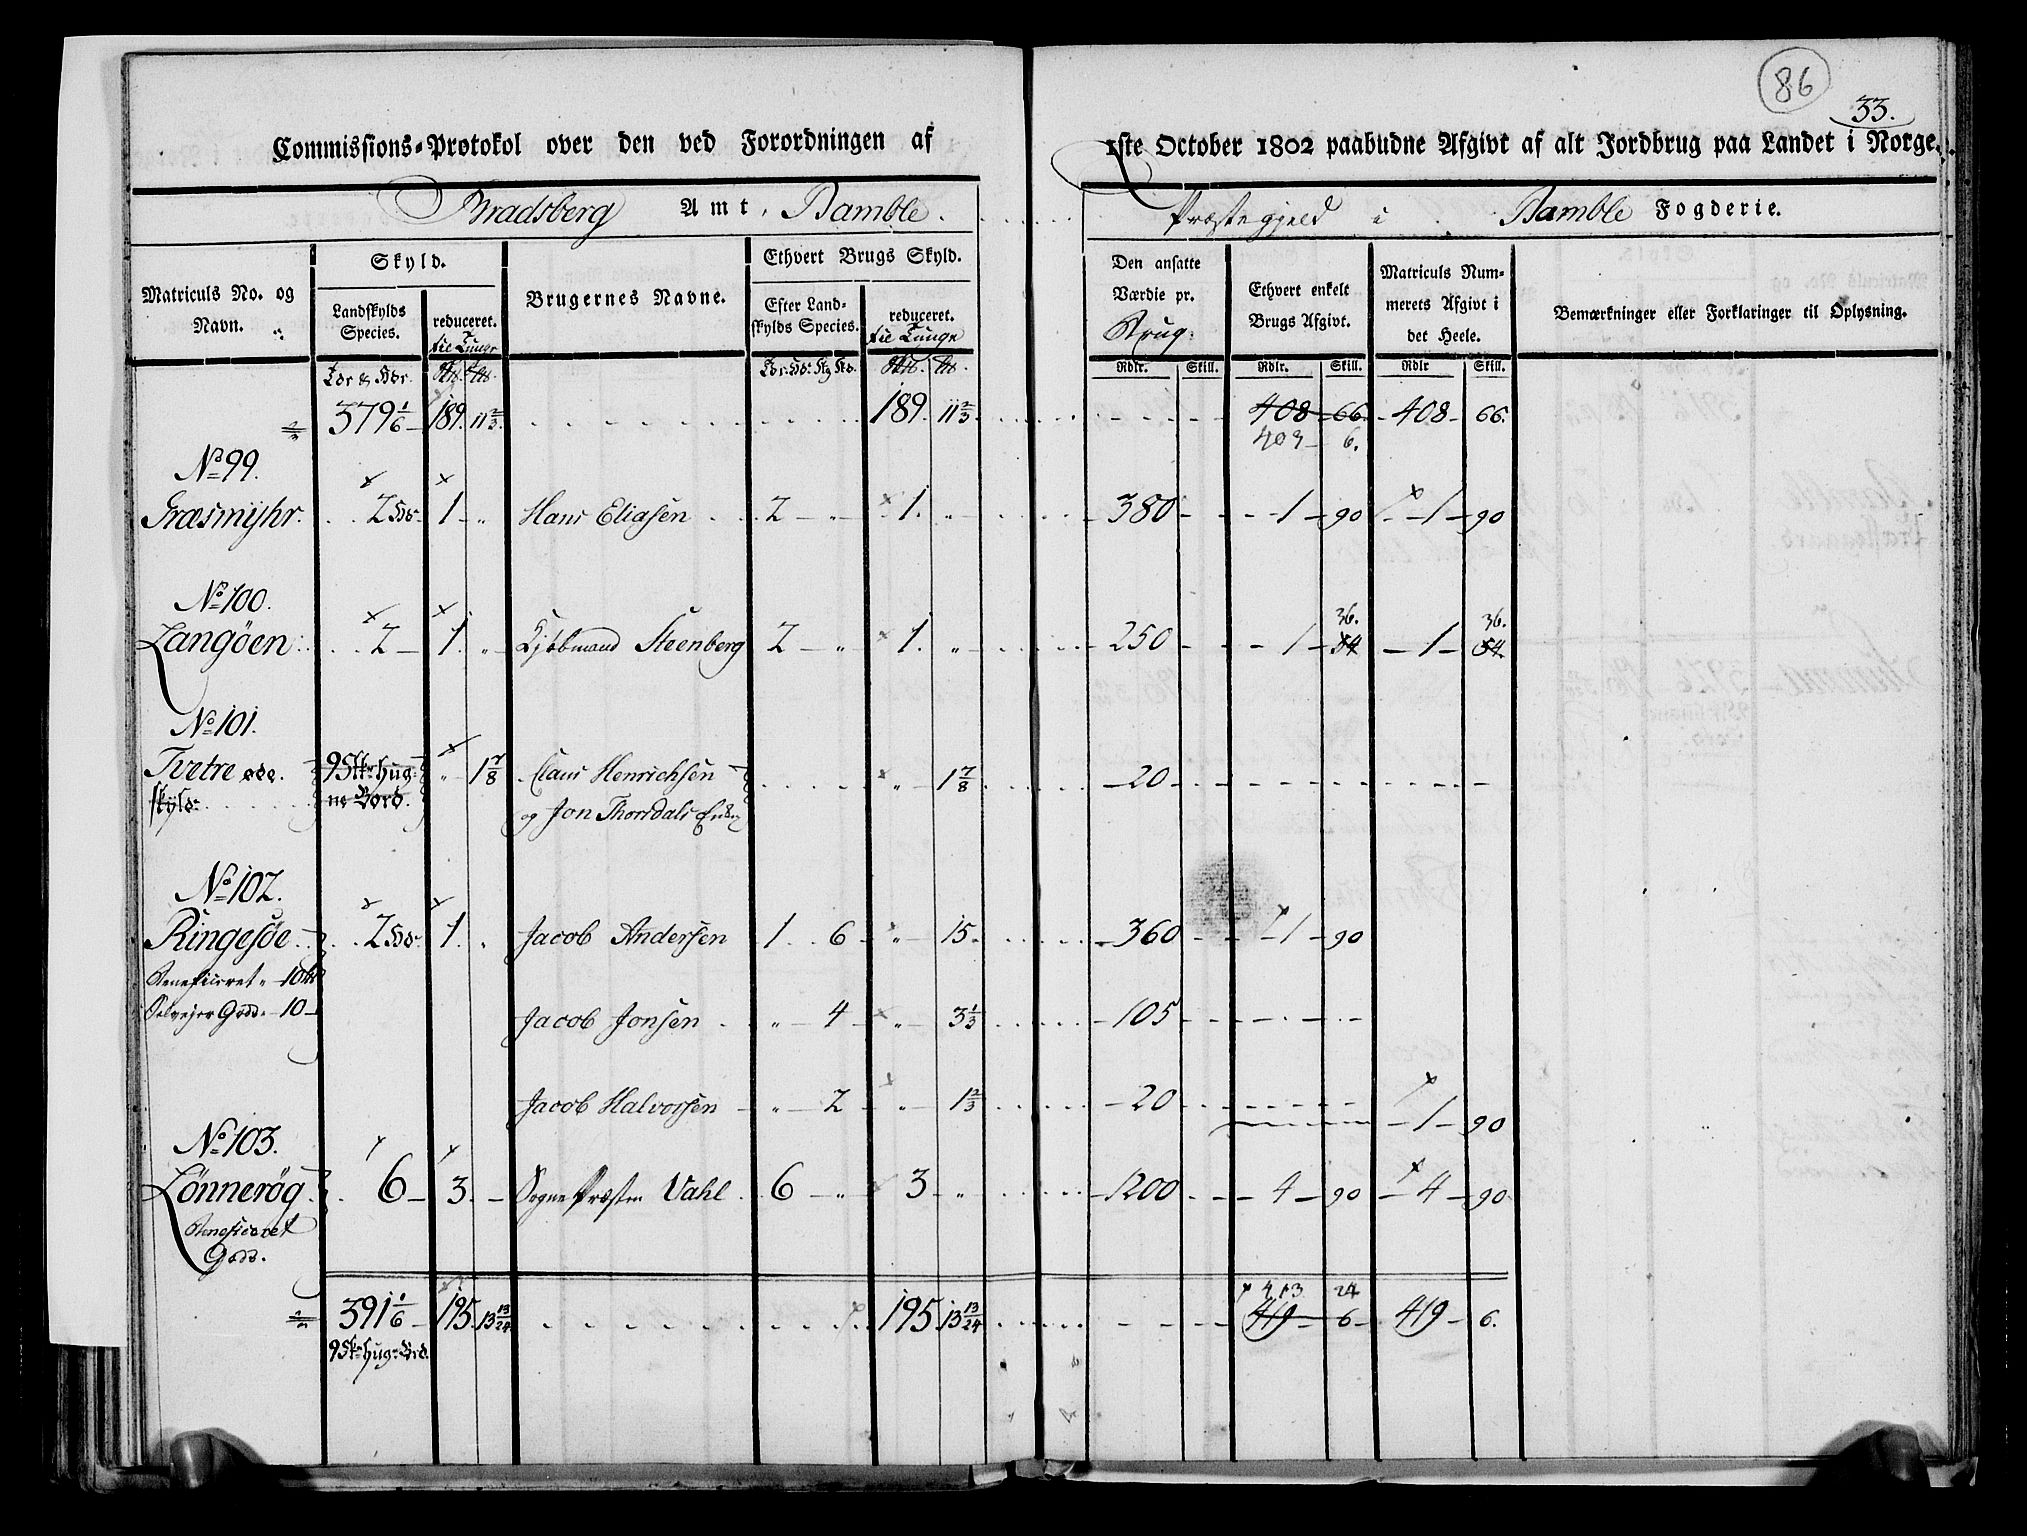 86
33.
Commissions-Protokol over den ved Forordningen af 1ste October 1802 paabudne Afgivt af alt Jordbrug paa Landet i Norge.
Bradsberg Amt, Bamble Præstegjeld i Bamble Fogderie.
Matriculs No. og Navn. Skyld. Brugernes Navne. Ethvert Brugs Skyld. Den ansatte Værdie pr. Brug. Ethvert enkelt Brugs Afgivt. Matriculs Nummerets Afgivt i det Heele. Bemærkninger eller Forklaringer til Oplysning.
Landskylds Species. reduceret. til Tunge Efter Landskylds Species. reduceret. til Tunge
Rdlr. Skill. Rdlr. Skill. Rdlr Skill.
379 1/6 189. 11 2/3 189. 11 2/3 408 66 408 66.
403 6.
No 99.
Græsmyhr. 2 1 " Hans Eliasen 2 " 1. " 380 1 90 1 90
No 100. 36. 36.
Langöen 2 1. " Kjøbmand Steenberg 2 " 1. " 250 1 54 1 54.
No 101.
Tvetre øde 9 Stk: hug- " 1 7/8 Claus Henrichsen " 1 7/8 20
skyld ne Bord. og Jon Thorsdals Enke
No 102.
Ringesöe 2 1. " Jacob Andersen 1 6 " 15. 360 1 90
Beneficeret " 10
Selvejer Gods " 10 Jacob Jonsen " 4 " 3 1/3 105
Jacob Halvorsen " 2 " 1 2/3 20 1 90
No 103.
Lönnerög 6 3. Sogne Præsten Vahl 6 " 3 " 1200 4 90 4 90
Beneficeret
Gods.
413 24
391 1/6 195 13 13/24 195 13 13/24 419 6 419 6.
9 Stk: hug: Brd.